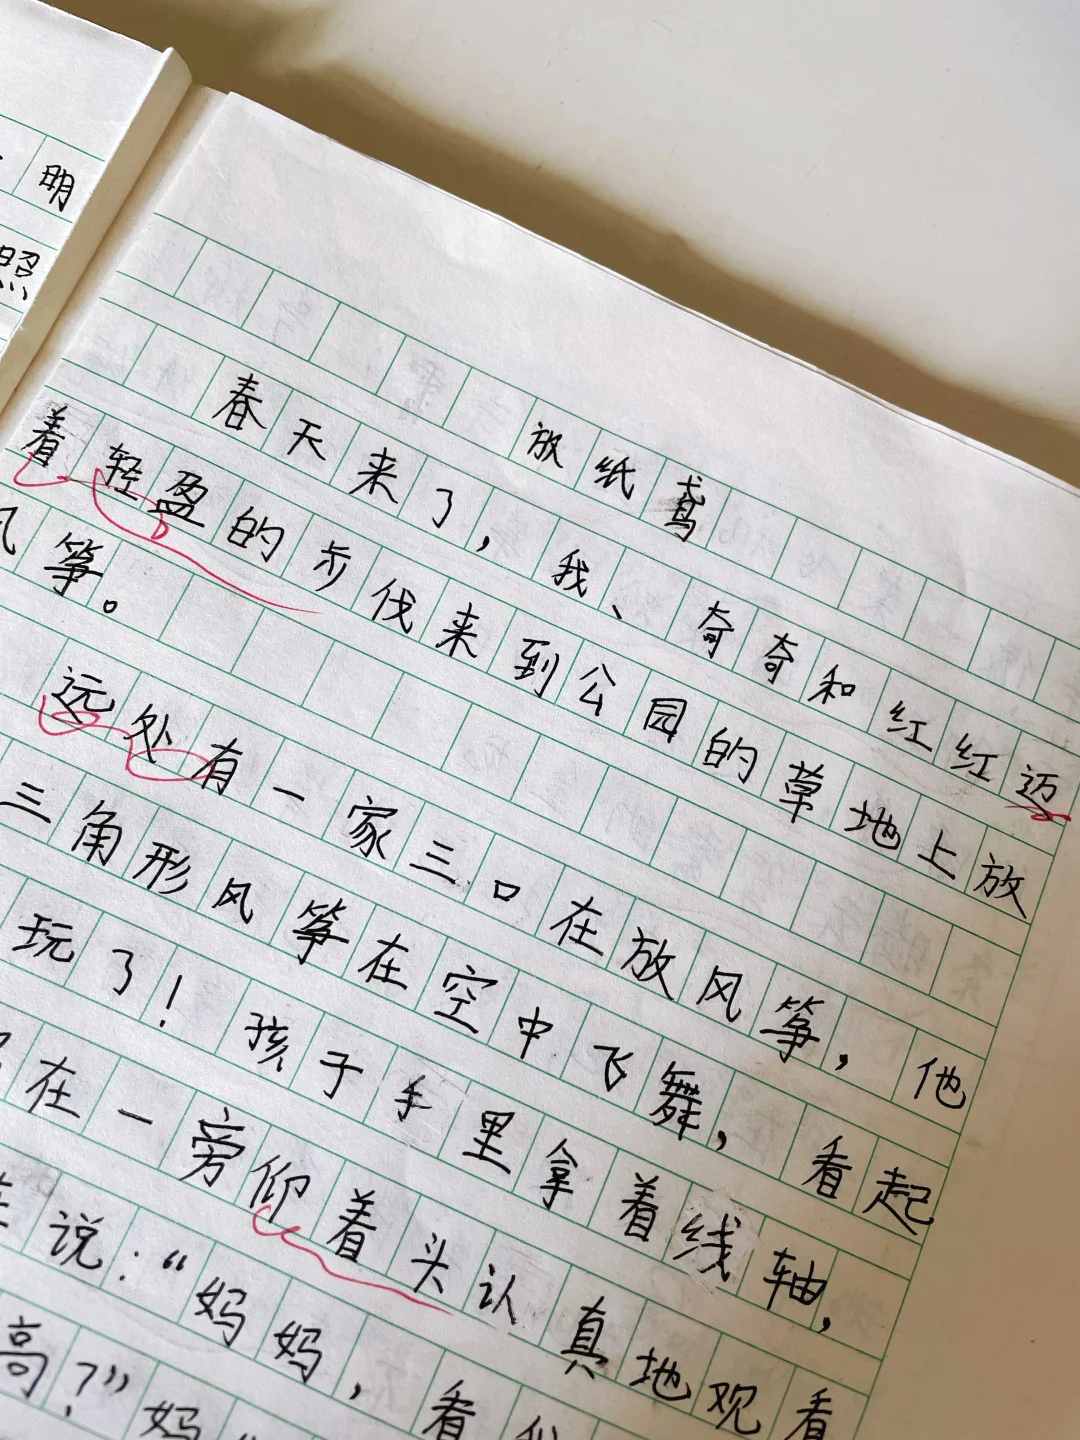 明
照
放纸鸢
春天来了，我、奇奇和红红迈
着轻盈的步伐来到公园的草地上放
风筝。
远处有一家三口在放风筝，他
三角形风筝在空中飞舞，看起
玩了！孩子手里拿着线轴，
在一旁仰着头认真地观看
说：“妈妈，看
高？”妈